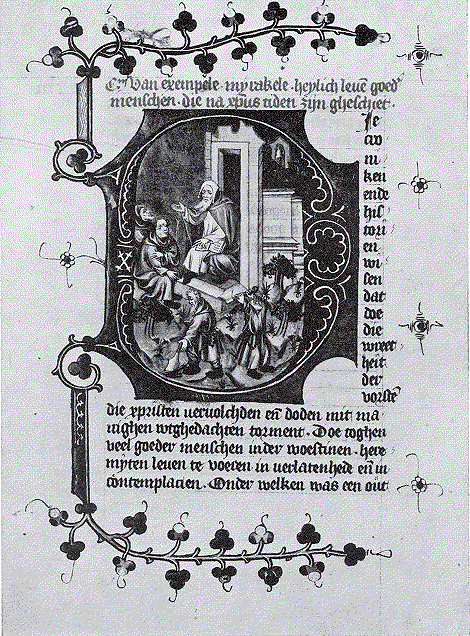 Van exempele · myrakele · heylich leuē goed'
menschen · die na xpus tiden zijn ghesciet ·
Die
cro
ni
ken
ende
his
tori
en
wi
sen
dat
doe
die
wreet
heit
der
vorstē
die xpristen veruolchden eñ doden mit ma
nighen wtghedachten torment . Doe toghen
veel goeder menschen inder woestinen . here
myten leuen te voeren in verlatenhede eñ in
contemplacien . Onder welken was een out